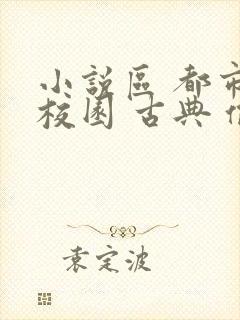 小說區 都市
校園 古典
袁定波